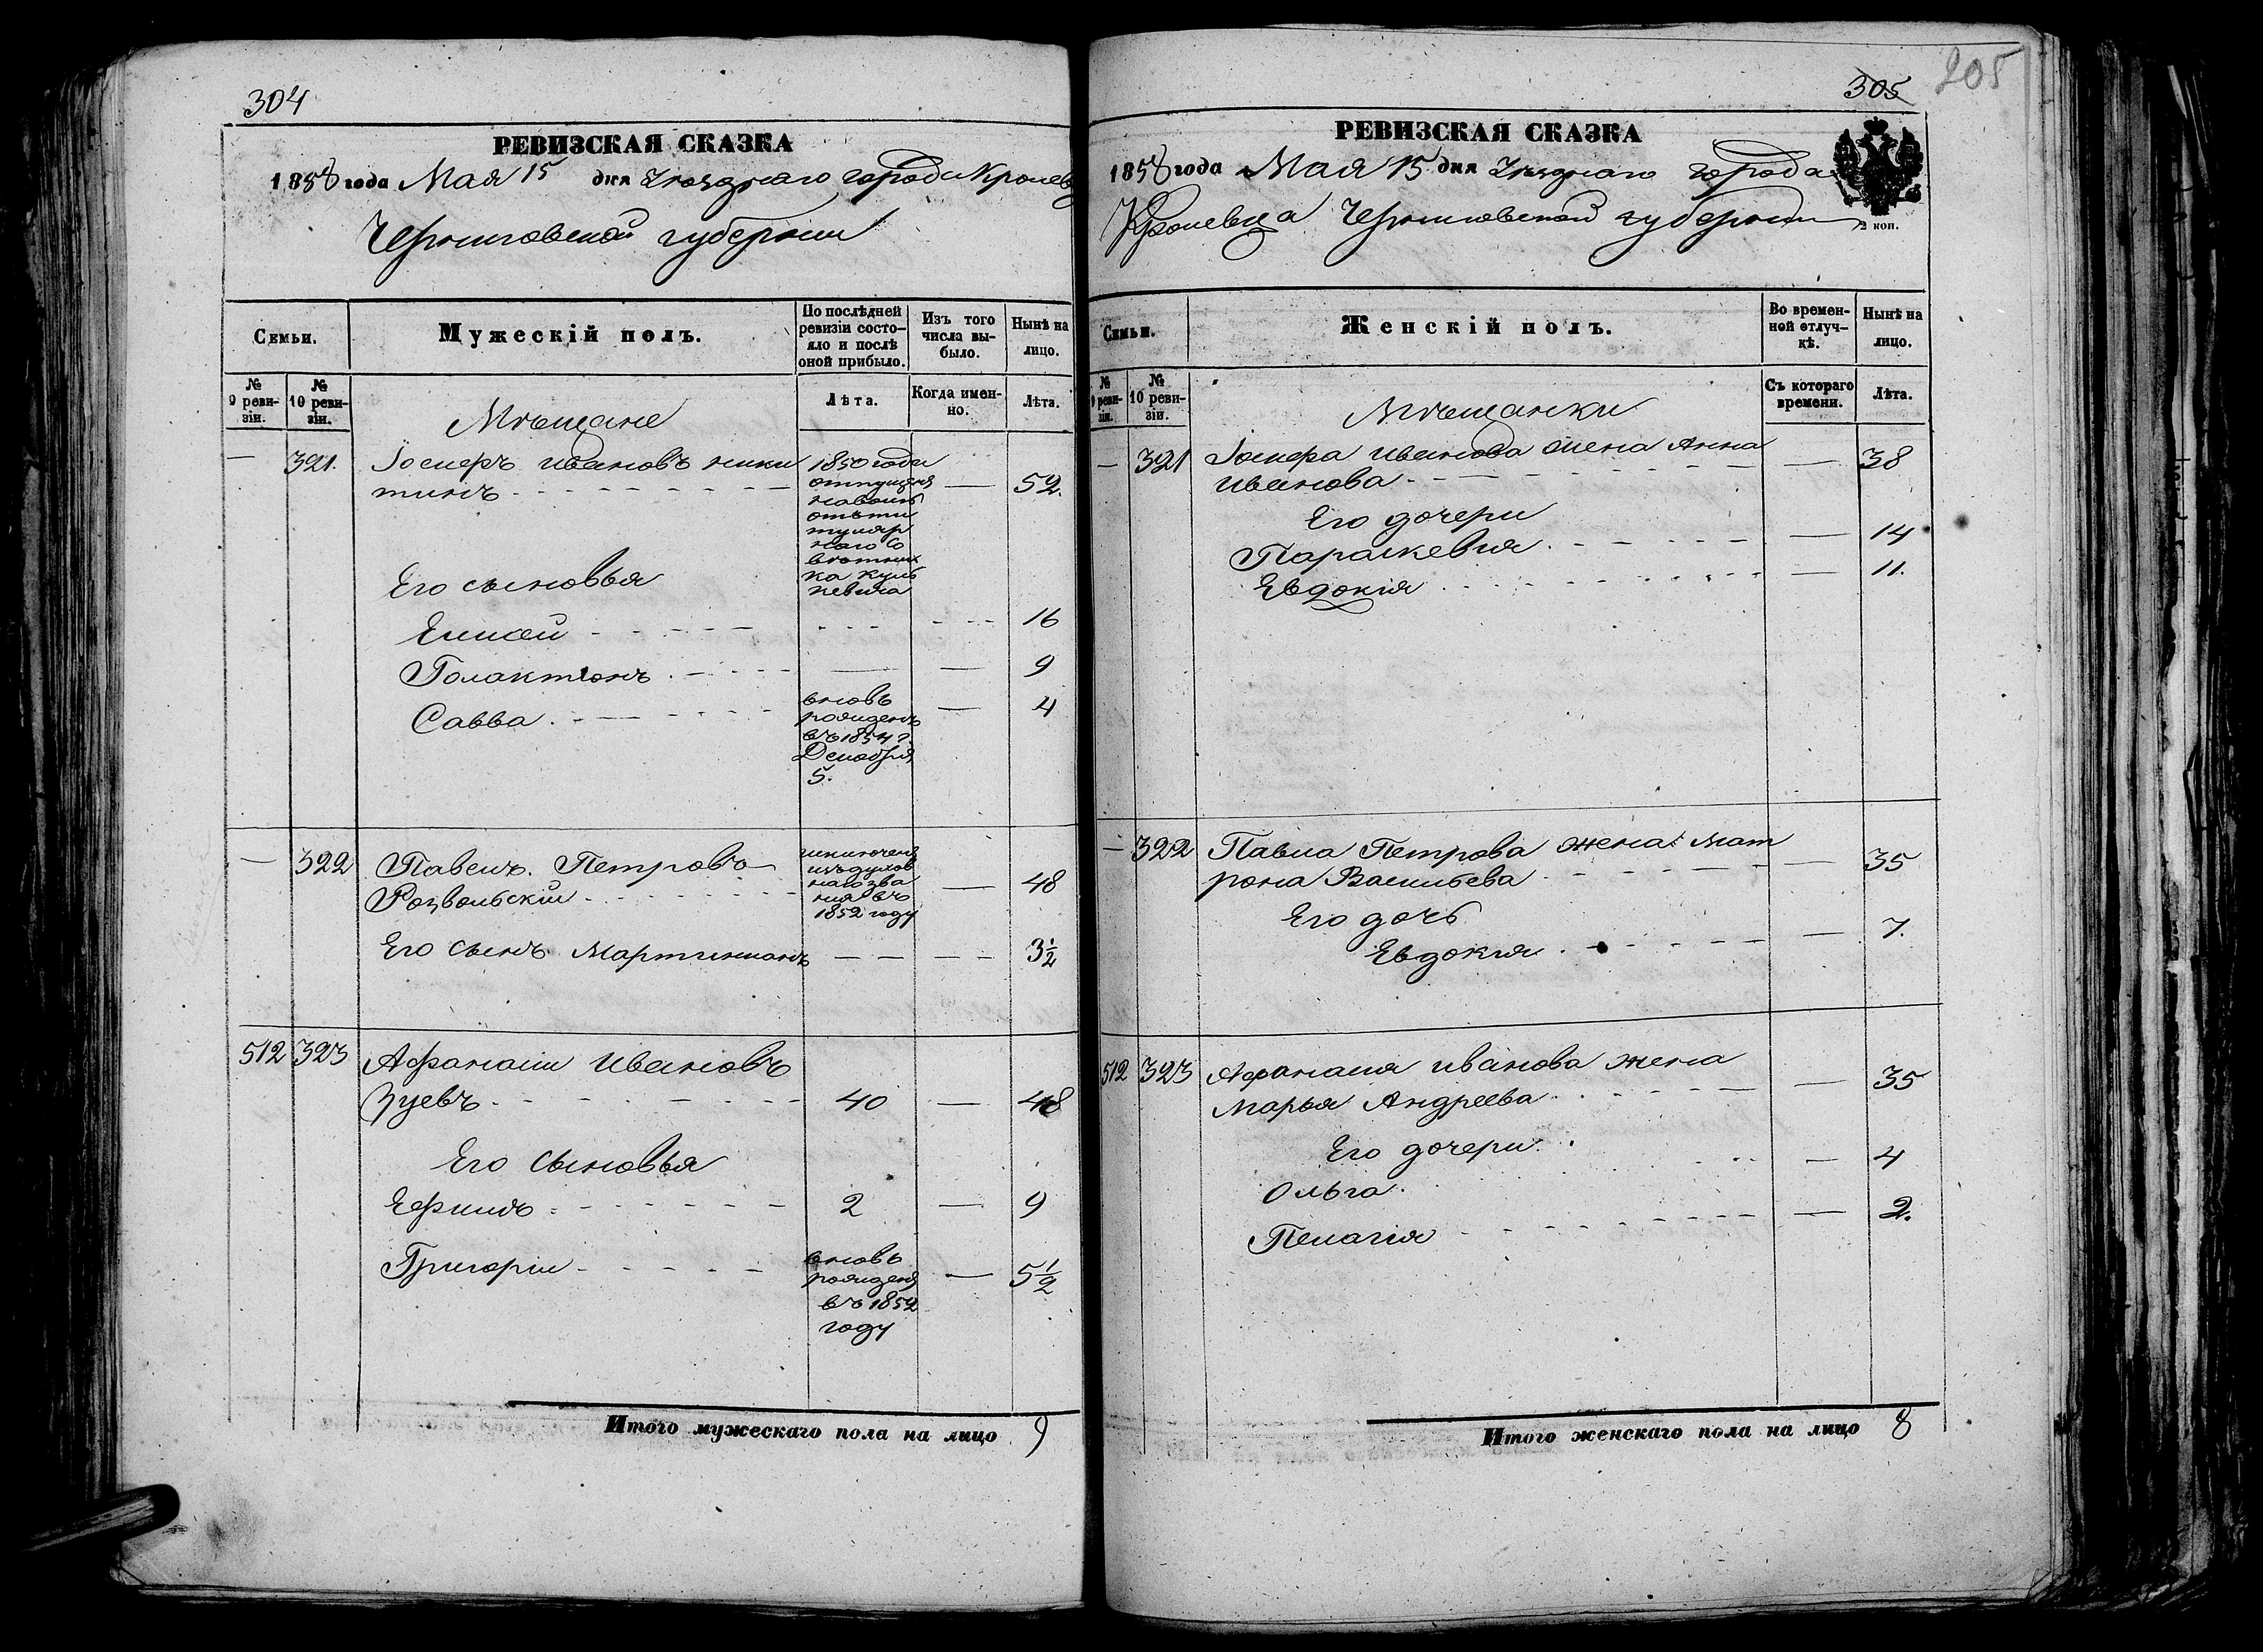 304
РЕВИЗСКАЯ СКАЗКА
1858 года Мая 15 дня Уѣзднаго города Кролевц
Черниговской губерніи
Семьи.
Мужескій полъ.
По послѣдней ревизіи состо-
яло и послѣ
оной прибыло.
Изъ того
числа вы-
было.
Нынѣ на
лицо.
№
9 реви-
зіи.
№
10 реви-
зіи.
Лѣта.
Когда имен-
но.
Лѣта.
Мѣщане
— 321. Іосифъ Ивановъ Ники
тинъ 1850 года
отпущенъ
на волю
отъ ти
туляр
наго Со
вѣтни
ка — 52.
Его сыновья
Елисей 16
Галактіонъ — — 9
Савва вновь
рожденъ
въ 1854 г.
Декабря
5. — 4
— 322 Павелъ Петровъ
исключенъ
изъ духов
наго зва
нія въ
1852 году — 48
Его сынъ Мартиніанъ 3½
512 323 Афанасій Ивановъ
Зуевъ 40 — 48
Его сыновья
Ефимъ 2 — 9
Григорій вновь
рожденъ
въ 1852
году — 5½
Итого мужескаго пола на лицо 9
305
205
РЕВИЗСКАЯ СКАЗКА
1858 года Мая 15 дня Уѣзднаго города
Кролевца Черниговской губерніи
2 коп.
Семьи.
Женскій полъ.
Во времен-
ной отлуч-
кѣ.
Нынѣ на
лицо.
№
9 реви-
зіи.
№
10 реви-
зіи.
Съ котораго
времени.
Лѣта.
Мѣщанки
— 321 Іосифа Иванова жена Анна
Иванова — 38
Его дочери
Параскевія — 14
Евдокія — 11.
— 322 Павла Петрова жена Мат
рона Васильева — 35
Его дочь
Евдокия — 7.
512 323 Афанасія Иванова жена
Марья Андреева — 35
Его дочери
Ольга — 4
Пелагія — 2.
Итого женскаго пола на лицо 8